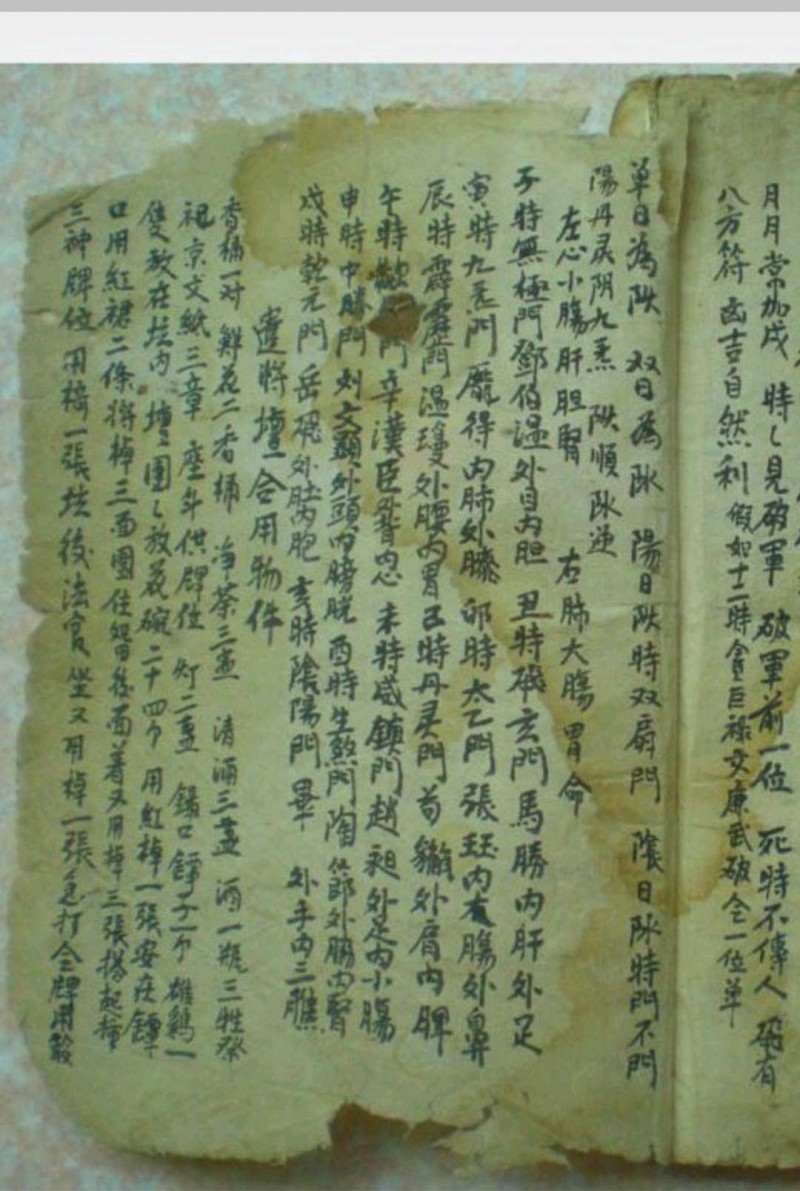 月月常加戌 時〻見破軍 破軍前一位 死時不傳人 有
八方符 凶吉自然利 假如十二時貪巨祿文廉武破 一位
單日為 双日為 陽日 時双扇門 陰日 時門不門
陽丹灵阴九炁 順 逆
左心小腸肝胆腎 右肺大腸胃命
子時無極門鄧伯温外目内胆 丑時 玄門馬勝内肝外足
寅時九炁門龐得内肺外膝 卯時太乙門張玨内大腸外鼻
辰時霹靂門温瓊外腰内胃 巳時丹灵門苟 外肩内脾
午時 門辛漢臣外背内心 未時威鎮門趙昶外足内小腸
申時中勝門刘文顯外頭内膀胱 酉時生煞門陶 郎外腦内腎
戌時乾元門岳飛外肚内胞 亥時陰陽門畢 外手内三膲
遣將壇合用物件
香桶一对 鮮花二香桶 净茶三盏 清酒三盏 酒一瓶三牲祭
祖京文紙三章 座年供牌位 灯二盏 口鐔子一个 雄鷄一
隻放在坛内 壇圍〻放花碗二十四个 用紅棹一張安庄鐔
口用紅裙二條將棹三面圍住留後面着又用棹三張搭起
三神牌位 用椅一張坛後法官坐又用棹一張 打令牌用